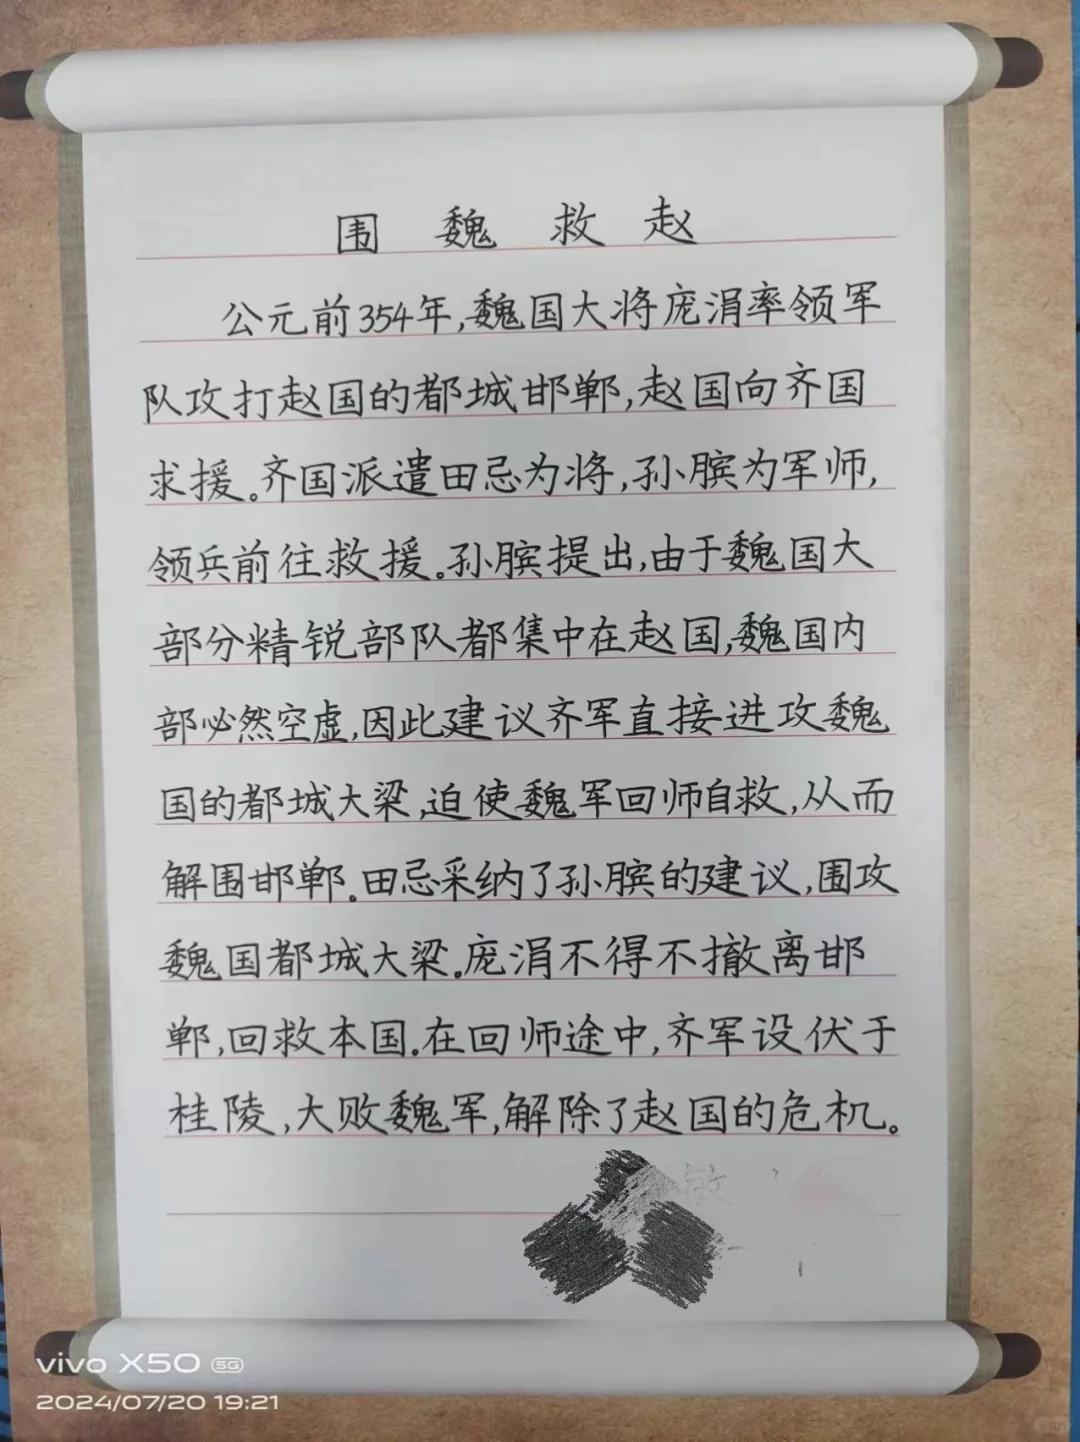 围魏救赵
公元前354年,魏国大将庞涓率领军
队攻打赵国的都城邯郸,赵国向齐国
求援。齐国派遣田忌为将,孙膑为军师,
领兵前往救援。孙膑提出,由于魏国大
部分精锐部队都集中在赵国,魏国内
部必然空虚,因此建议齐军直接进攻魏
国的都城大梁,迫使魏军回师自救,从而
解围邯郸。田忌采纳了孙膑的建议,围攻
魏国都城大梁。庞涓不得不撤离邯
郸,回救本国。在回师途中,齐军设伏于
桂陵,大败魏军,解除了赵国的危机。
vivo X50 5G
2024/07/20 19:21